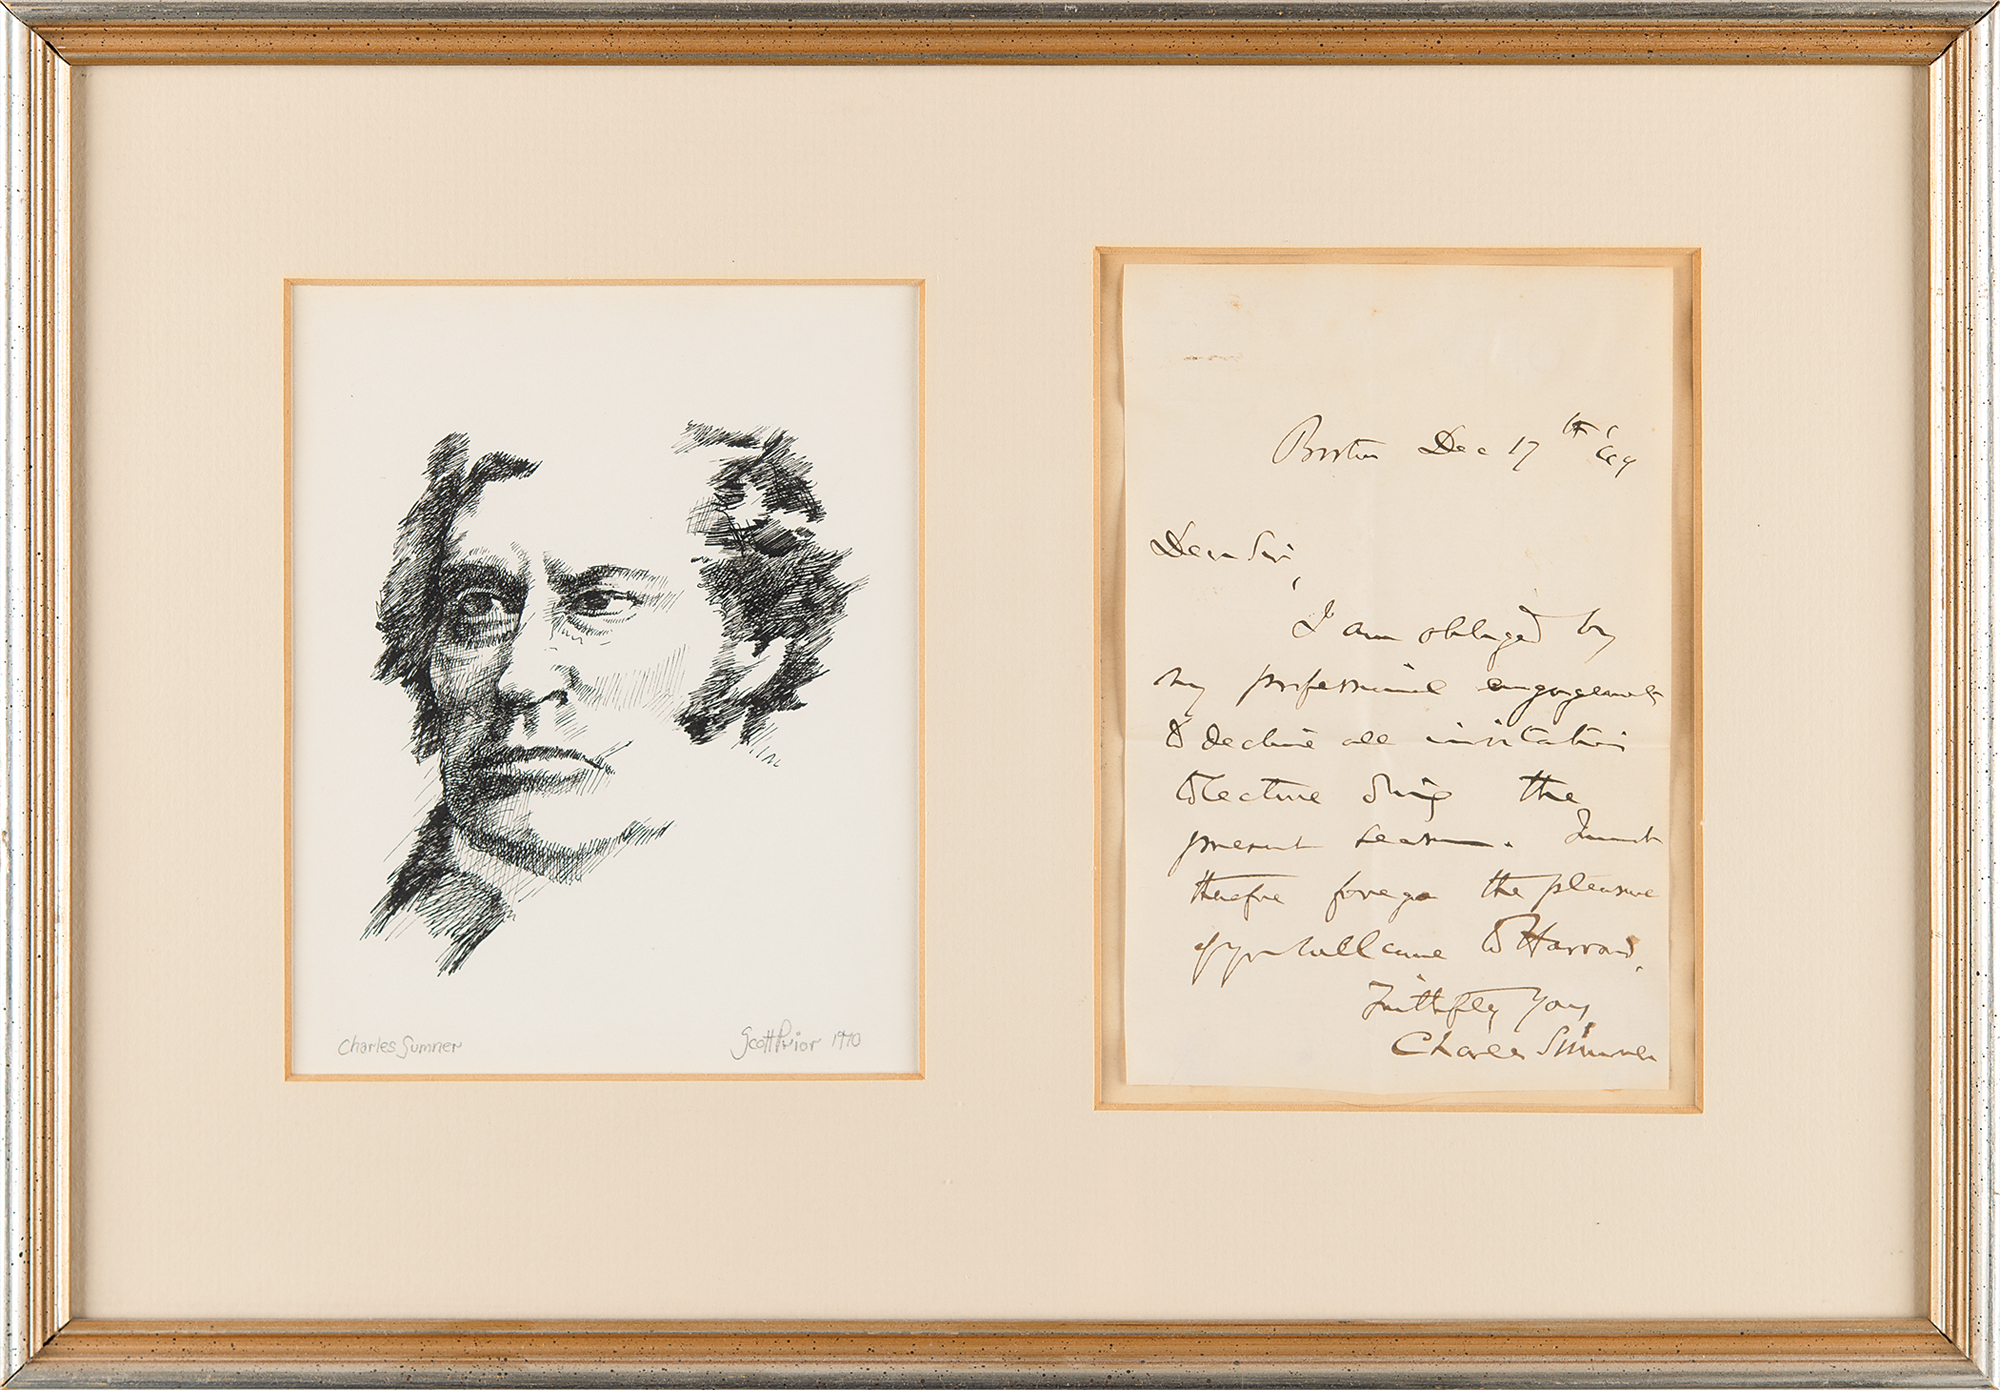 Charles Sumner
Scott Prior 1970
Boston Dec 17th '49
Dear Sir,
I am obliged by
my professional engagements
to decline all invitations
to lecture during the
present season. I must
therefore forego the pleasure
of your welcome to Harvard.
Faithfully Yours,
Charles Sumner